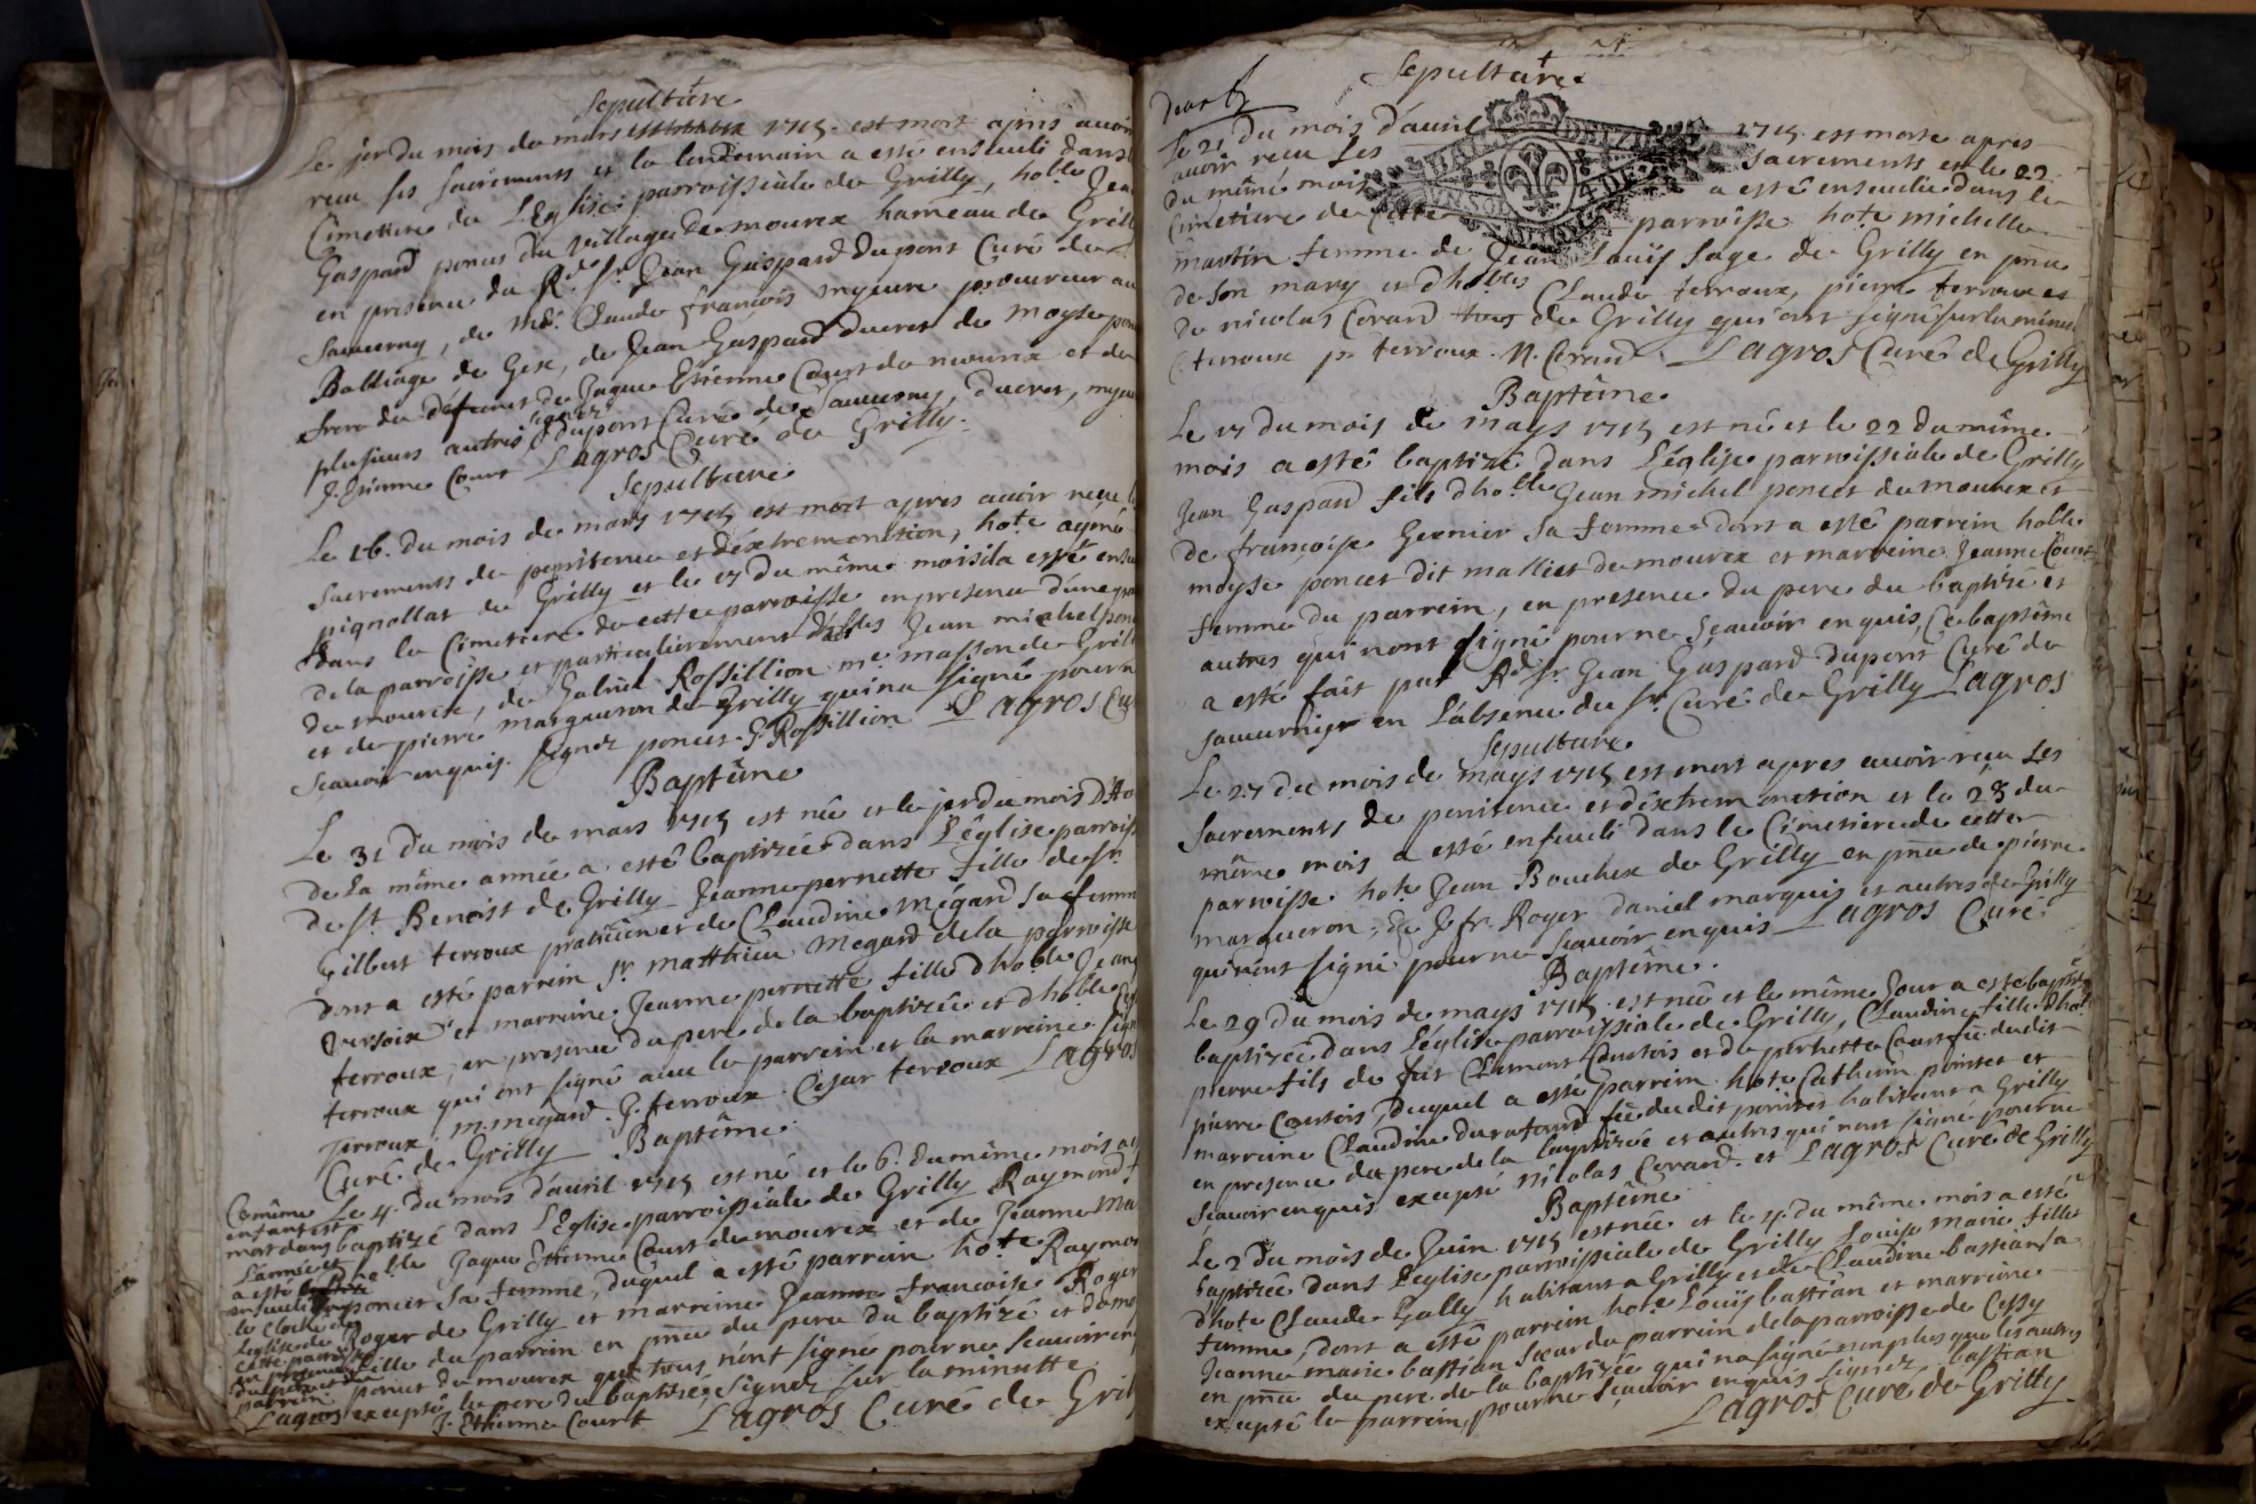 Sepulture
Le jer du mois de mars 1715. est mort apres avoir
recu ses sacrements et le lendemain a esté enseveli dans
Cimetiere de L'Eglise parroissiale de Grilly, hoble Jean
Gaspard poncet du village de mourex hameau de Grilly
en presence du Rd. Sr. Jean Gaspard dupont Curé de
Sauverny, de Me. Claude françois procureur au
Balliage de Gex, de Jean Gaspard ducret de moyse poncet
frere du défunct de Jaque Etienne Court de mourex et de
plusieurs autres signez dupont Curé de Sauverny, ducret,
J. Etienne Court Lagros Curé de Grilly.
Sepulture
Le 16. du mois de mars 1715 est mort apres avoir reçu les
Sacrements de penitence et déxtremonction, hote aymé
pignollat de Grilly et le 17 du même mois il a esté ense
dans le Cimetiere de cette parroisse en presence d'une
de la parroisse et particulierement d'hobles Jean michel pon
de mourex, de Gabriel Rossillion me. masson de Grilly
et de pierre marqueron de Grilly qui na signé pour n
Sçavoir enquis. signez poncet. G. Rossillion Lagros Cu
Baptême
Le 31 du mois de mars 1715 est née et le jer du mois D'Av
de la même année a esté baptizée dans L'église parroiss
de St. Benoist de Grilly Jeanne pernette fille de Sr.
Gilbert terroux praticien et de Claudine Mégard sa femme
dont a esté parrein Sr. Matthieu Megard de la parroisse
Versoix et marreine Jeanne pernette fille d'hoble Jean
terroux, en presence du pere de la baptizée et d'hoble
terroux qui ont signé avec le parrein et la marreine. sign
Terroux. M. Megard. J. terroux. Cesar terroux Lagros
Curé de Grilly
Baptême.
Le 4. du mois d'avril 1715 est né et le 6. du même mois a
baptizé dans L'Eglise parroissiale de Grilly Raymond f
Jaque Etienne Court de mourex et de Jeanne Ma
poncet sa femme, duquel a esté parrein hote Raymon
Roger de Grilly et marreine Jeanne françoise Roger
fille du parrein en pnce du pere du baptizé et de mo
poncet de mourex qui tous n'ont signé pour ne scavoir en
excepté le pere du baptizé, signez sur la minutte.
J. Etienne Court Lagros Curé de Gril
Ce même
enfant est
mort dans
L'année et
a esté
enseveli
le Clocher
Leglise de
cette parroisse
en presence
du pere et du
parrein
Lagros
Sepulture
Le 21 du mois d'avril 1715 est morte apres
avoir recu ses sacrements et le 22
du même mois a esté ensevelie dans le
Cimetiere de Cette parroisse hote michelle
martin femme de Jean Louïs Sage de Grilly en pnce
de son mary et d'hobles Claude terroux, pierre terroux et
de nicolas Covard de Grilly qui ont signé sur la minu
C. terroux p. terroux. N. Covard. Lagros Curé de Grilly
Baptême.
Le 17 du mois de mays 1715 est né et le 22 du même
mois a esté baptizé dans L'église parroissiale de Grilly
Jean Gaspard fils d'hoble Jean michel poncet de mourex et
de françoise Gernier sa femme dont a esté parrein hoble
moyse poncet dit malliet de mourex et marreine Jeanne Court
femme du parrein, en presence du pere du baptizé et
autres qui nont signé pour ne sçavoir enquis, Ce baptême
a esté fait par Rd. Sr. Jean Gaspard dupont Curé de
sauverny en L'absence du Sr. Curé de Grilly Lagros
Sepulture
Le 27 du mois de mays 1715 est mort apres avoir reçu Les
Sacrements de penitence et déxtrem onction et le 28 du
même mois a esté enseveli dans le Cimetiere de cette
parroisse hote Jean Bouchex de Grilly en pnce de pierre
marqueron, de J. fr. Roger daniel marquis et autres de Grilly
qui n'ont signé pour ne Scavoir enquis Lagros Curé.
Baptême.
Le 29 du mois de mays 1715 est née et le même Jour a esté
baptizée dans L'église parroissiale de Grilly, Claudine fille d'hote
pierre fils de feu Clement Coutois et de pernette Court fe. dudit
pierre Coutois, duquel a esté parrein hote Catherin pointet et
marreine Claudine duratond fe. dudit pointet habitant a Grilly
en presence du pere de la baptizée et autres qui n'ont signé pour ne
sçavoir enquis excepté nicolas Covard. et Lagros Curé de Grilly
Baptême
Le 2 du mois de Juin 1715 est née et le 4. du même mois a esté
baptizée dans L'eglise parroissiale de Grilly Louise marie fille
d'hote Claude Gally habitant a Grilly et de Claudine bastian sa
femme, dont a esté parrein hote Louïs bastian et marreine
Jeanne marie bastian soeur du parrein de la parroisse de Cessy
en pnce du pere de la baptizée qui na signé non plus que les autres
excepté le parrein, pour ne sçavoir enquis signez bastian
Lagros Curé de Grilly